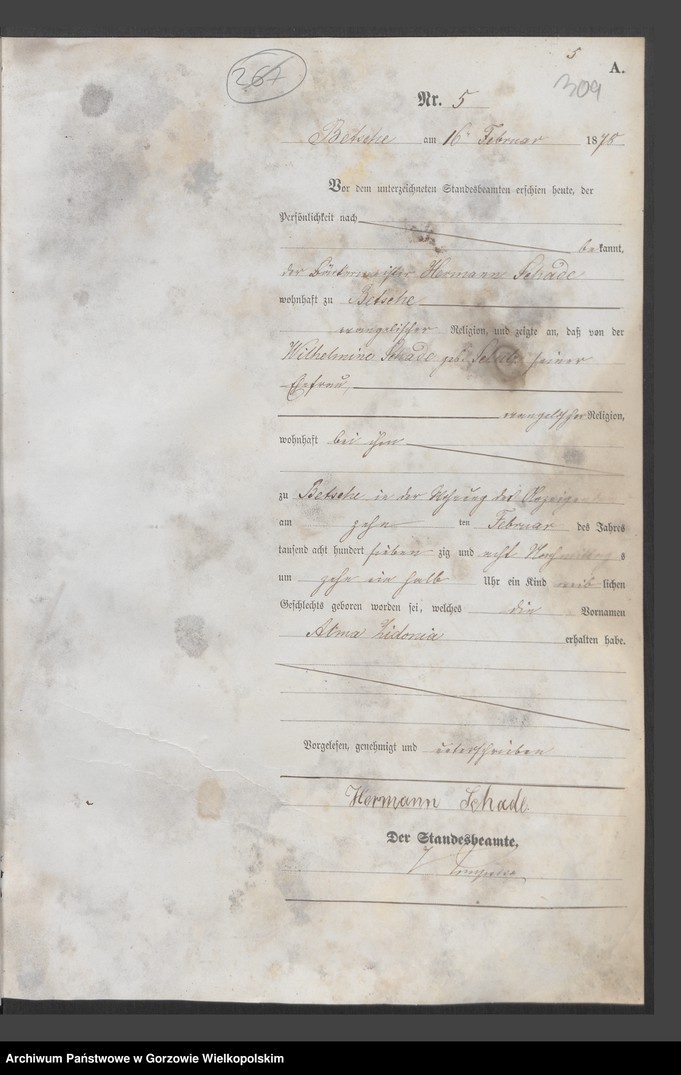 5
A.
267
309
Nr. 5
Betsche am 16 Februar 1878
Vor dem unterzeichneten Standesbeamten erschien heute, der
Persönlichkeit nach
bekannt,
der Bäckermeister Hermann Schade
wohnhaft zu Betsche
evangelischer Religion, und zeigte an, daß von der
Wilhelmine Schade geb. seiner
Ehefrau,
evangelischer Religion,
wohnhaft bei ihm
zu Betsche in der Wohnung des Anzeigenden
am zehn ten Februar des Jahres
tausend acht hundert sieben zig und acht Nachmittags
um zehn ein halb Uhr ein Kind weiblichen
Geschlechts geboren worden sei, welches die Vornamen
Alma Zidonia erhalten habe.
Vorgelesen, genehmigt und unterschrieben
Hermann Schade.
Der Standesbeamte,
Archiwum Państwowe w Gorzowie Wielkopolskim